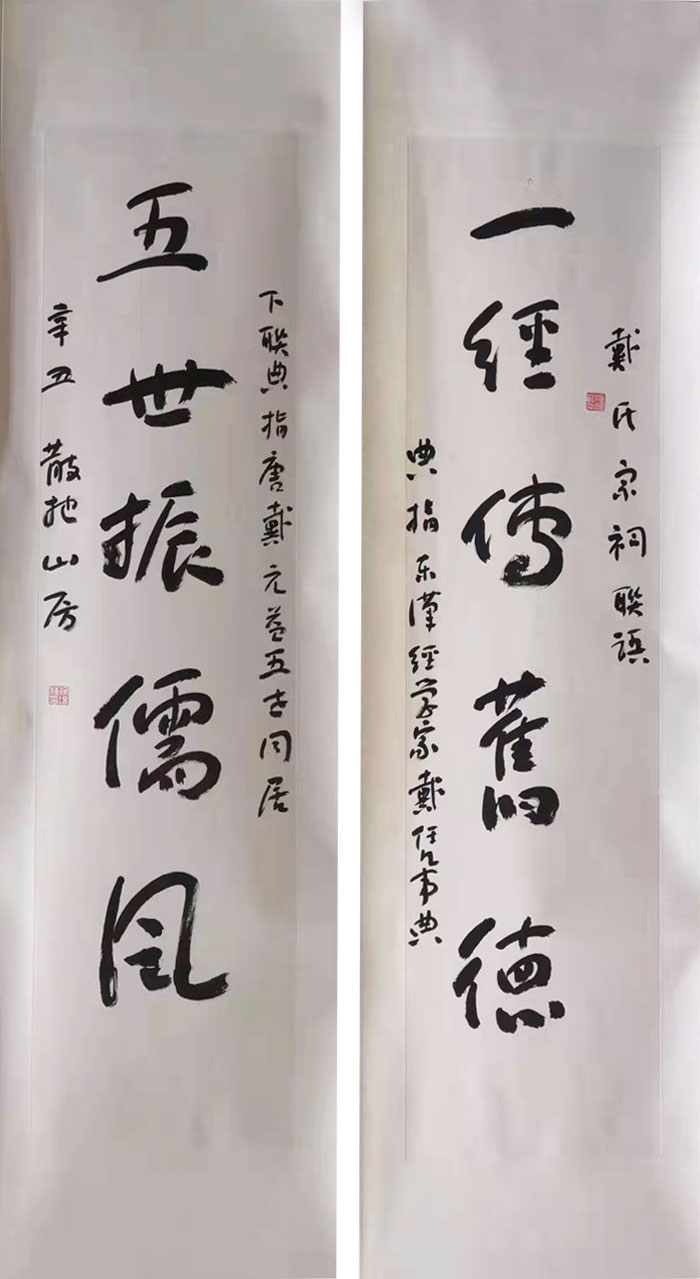 戴氏宗祠聯語
一經傳舊德
典指东漢經学家戴凭事典
下联典指唐戴元益五世同居
五世振儒风
辛丑 散地山房